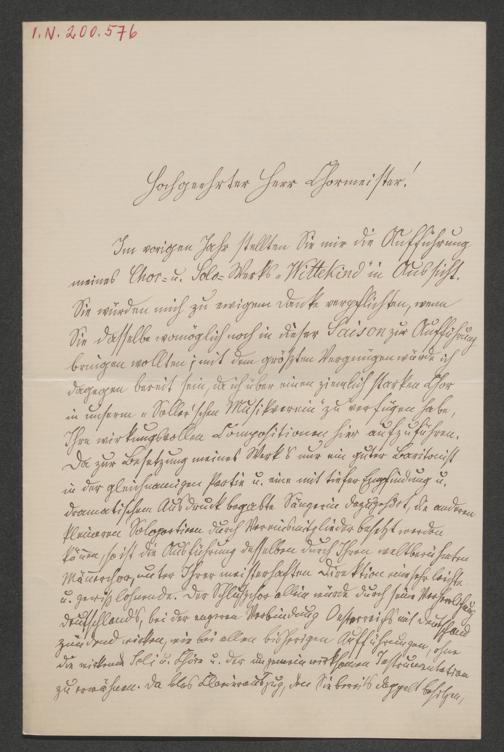 I.N. 200.576
Hochgeehrter Herr Chormeister!
Im vorigen Jahr stellten Sie mir die Aufführung
meines Chor- u. Solo-Werks „Wittekind" in Aussicht.
Sie würden mich zu ewigem Danke verpflichten, wenn
Sie dasselbe womöglich noch in dieser Saison zur Aufführung
bringen wollten; mit dem größten Vergnügen würde ich
dagegen bereit sein, da ich über einen ziemlich starken Chor
in unserm „Soller'schen Musikverein" zu verfügen habe,
Ihre wirkungsvollen Compositionen hier aufzuführen.
Da zur Besetzung meines Werk's nur ein guter Baritonist
in der gleichnamigen Partie u. eine mit tiefer Empfindung u.
dramatischem Ausdruck begabte Sängerin dazugehört, die anderen
kleineren Solopartien durch Vereinsmitglieder besetzt werden
können, so ist die Ausführung desselben durch Ihren weltberühmten
Männerchor, unter Ihrer meisterhaften Direktion eine sehr leichte
u. gewiß lohnende. Der Schlußchor allein würde durch seine
Deutschlands, bei der engeren Verbindung Oesterreichs mit Deutschland
zündend wirken, wie bei allen bisherigen Aufführungen, ohne
die wirkenden Soli u. Chöre u. der ungemein wirksamen Instrumentation
zu erwähnen. Da blos Clavierauszug, den Sie bereits doppelt besitzen,